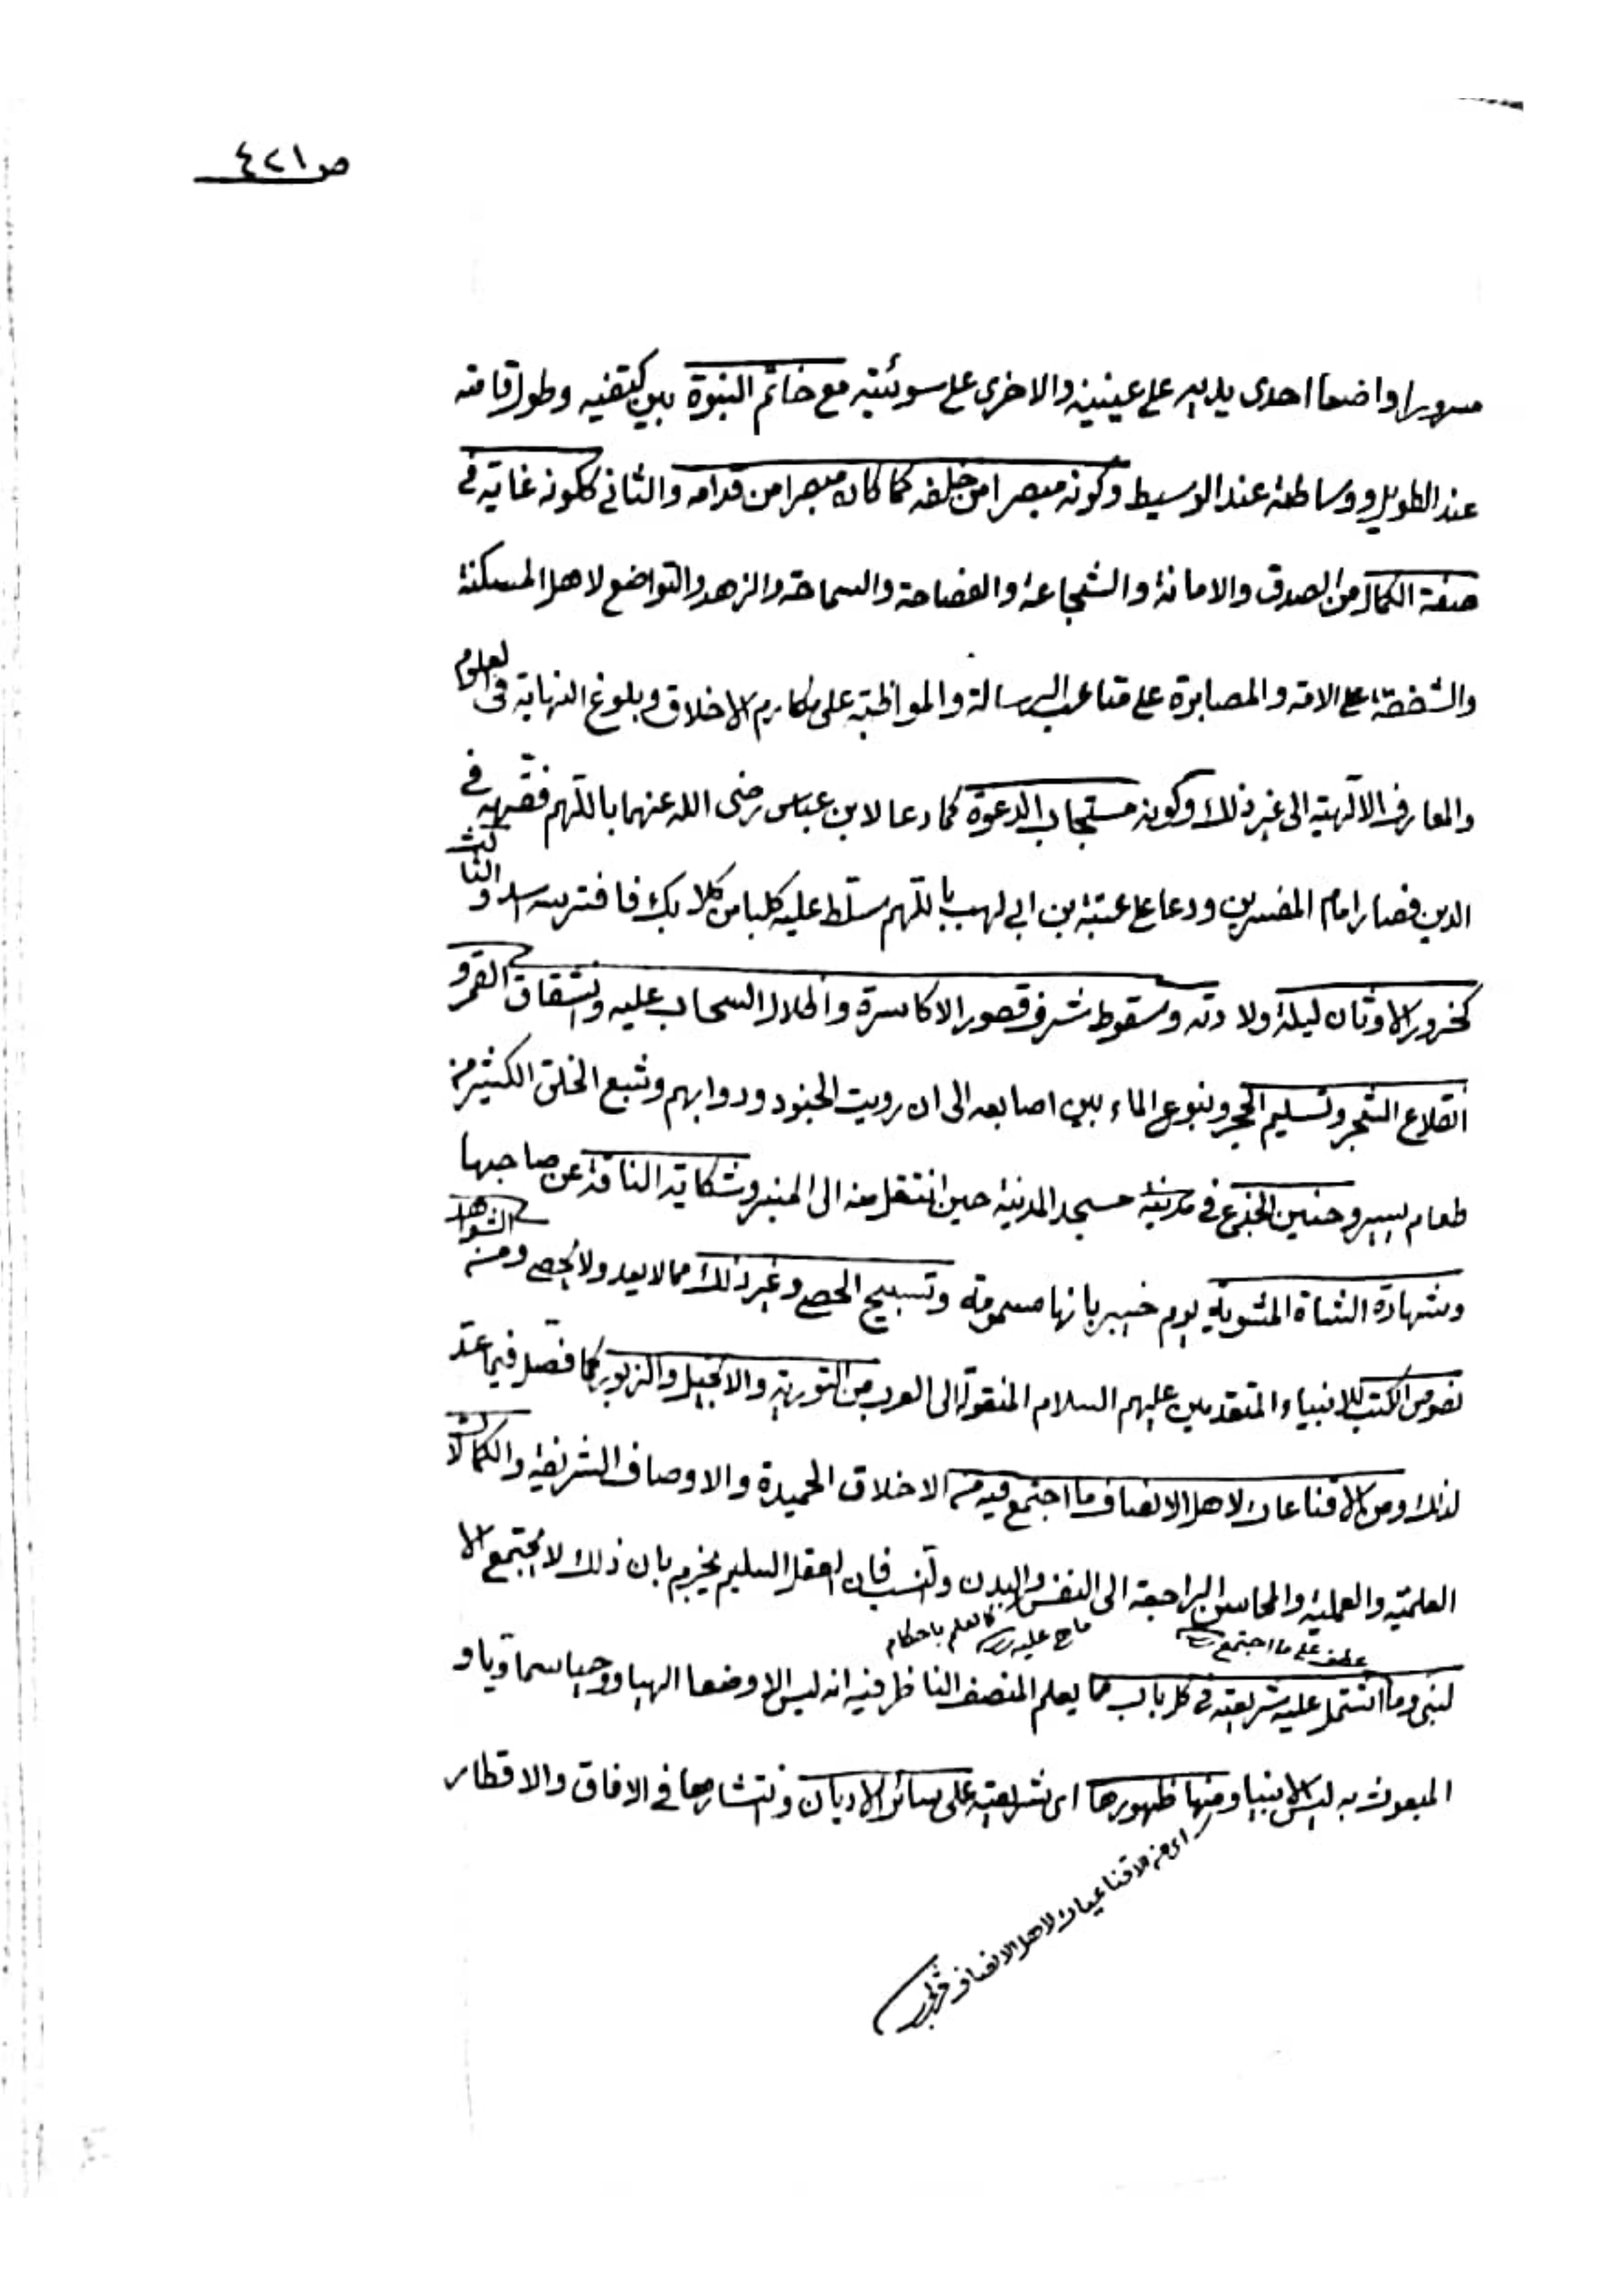 ص ٤٢١
مسرورا واضعا احدى يديه على عينيه والاخرى على سوئتيه مع خاتم النبوة بين كتفيه وطول قامته
عند الطويل ووساطته عند الوسيط وكونه مبصرا من خلفه كما كان مبصرا من قدامه والثاني ككونه غاية في
صفة الكمال من الصدق والامانة والشجاعة والفصاحة والسماحة والزهد والتواضع لاهل المسكنة
والشفقة على الامة والمصابرة على متاعب الرسالة والمواظبة على مكارم الاخلاق وبلوغ النهاية في العلوم
والمعارف الالهية الى غير ذلك وكونه مستجاب الدعوة كما دعا لابن عباس رضى الله عنهما باللهم فقهه في
الدين فصار امام المفسرين ودعا على عتبة بن ابي لهب باللهم سلط عليه كلبا من كلابك فافترسه اسد والثالث
كخرور الاوثان ليلة ولادته وسقوط شرف قصور الاكاسرة واظلال السحاب عليه وانشقاق القمر و
انقلاع الشجر وتسليم الحجر ونبوع الماء بين اصابعه الى ان رويت الجنود ودوابهم وشبع الخلق الكثير من
طعام يسير وحنين الجذع في مدينة مسجد المدينة حين انتقل منه الى المنبر وشكاية الناقة عن صاحبها
وشهادة الشاة المشوية يوم خيبر بانها مسمومة وتسبيح الحصى وغير ذلك مما لا يعد ولا يحصى ومن الشواهد
نصوص الكتب للانبياء المتقدمين عليهم السلام المنقولة الى العرب من التورية والانجيل والزبور كما فصل فيما عقد
لذلك ومن الاقناعات لاهل الانصاف ما اجتمع فيه من الاخلاق الحميدة والاوصاف الشريفة والكمالات
العلمية والعملية والمحاسن الراجعة الى النفس والبدن والنسب فان العقل السليم يجزم بان ذلك لا يجتمع الا
عطف على ما اجتمع
كالعلم باحكام
لنبى وما اشتمل عليه شريعته في كل باب مما يعلم المنصف الناظر فيه انه ليس الا وضعا الهيا ووحيا سماويا و
المبعوث به ليس الا نبيا ومنها ظهورها اى شريعته على سائر الاديان وانتشارها في الافاق والاقطار
اى من الاقناعيات لاهل الانصاف